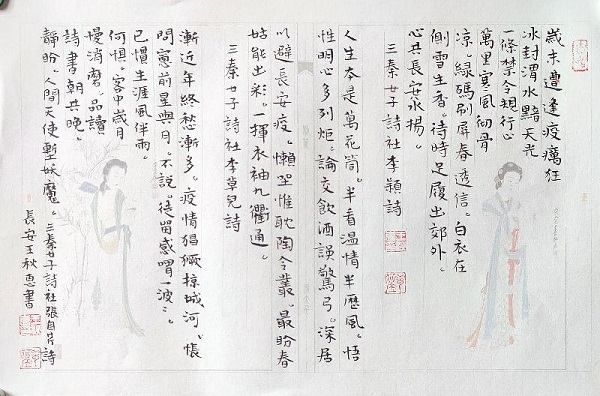 歲末遭逢疫癘狂
冰封渭水黯天光
一條禁令規行
萬里寒風彻骨
凉。綠碼刷屏春透信。白衣在
側雪生香。待時足履出郊外。
心共長安永揚。
三秦女子詩社李穎詩
人生本是萬花筒。半看溫情半歷風。悟
性明心多列炬。論交飲酒誤驚弓。深居
以避長安疫。懶坐惟耽陶令叢。最盼春
姑能出彩。一揮衣袖九衢通。
三秦女子詩社李草兒詩
漸近年終愁漸多。疫情猖獗掠城河。悵
問寅前星與月。不說。徒留感喟一波〻。
已慣生涯風伴雨。
何惧。客中歲月
慢消磨。品讀
詩書朝共晚。
靜盼。人間天使塹妖魔。三秦女子詩社張自芹詩
長安王秋惠書